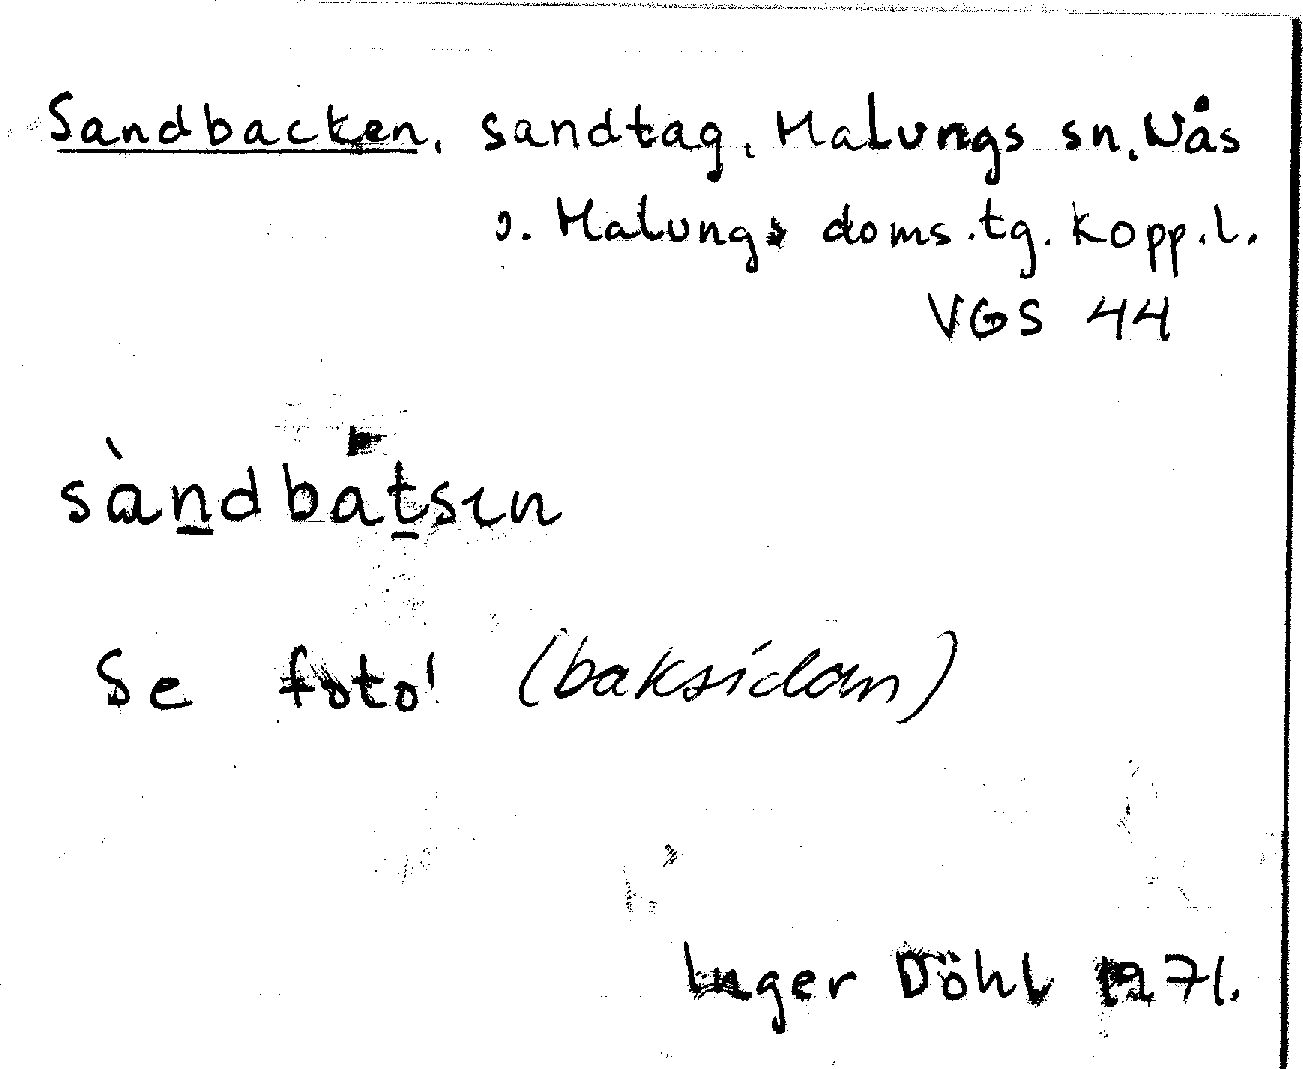 Sandbacken, sandtag, Malungs sn, Nås
o. Malungs doms.tg. Kopp.l.
VGS 44
sàn̲dbat̲sın
Se foto! (baksidan)
Inger Döhl 1971.